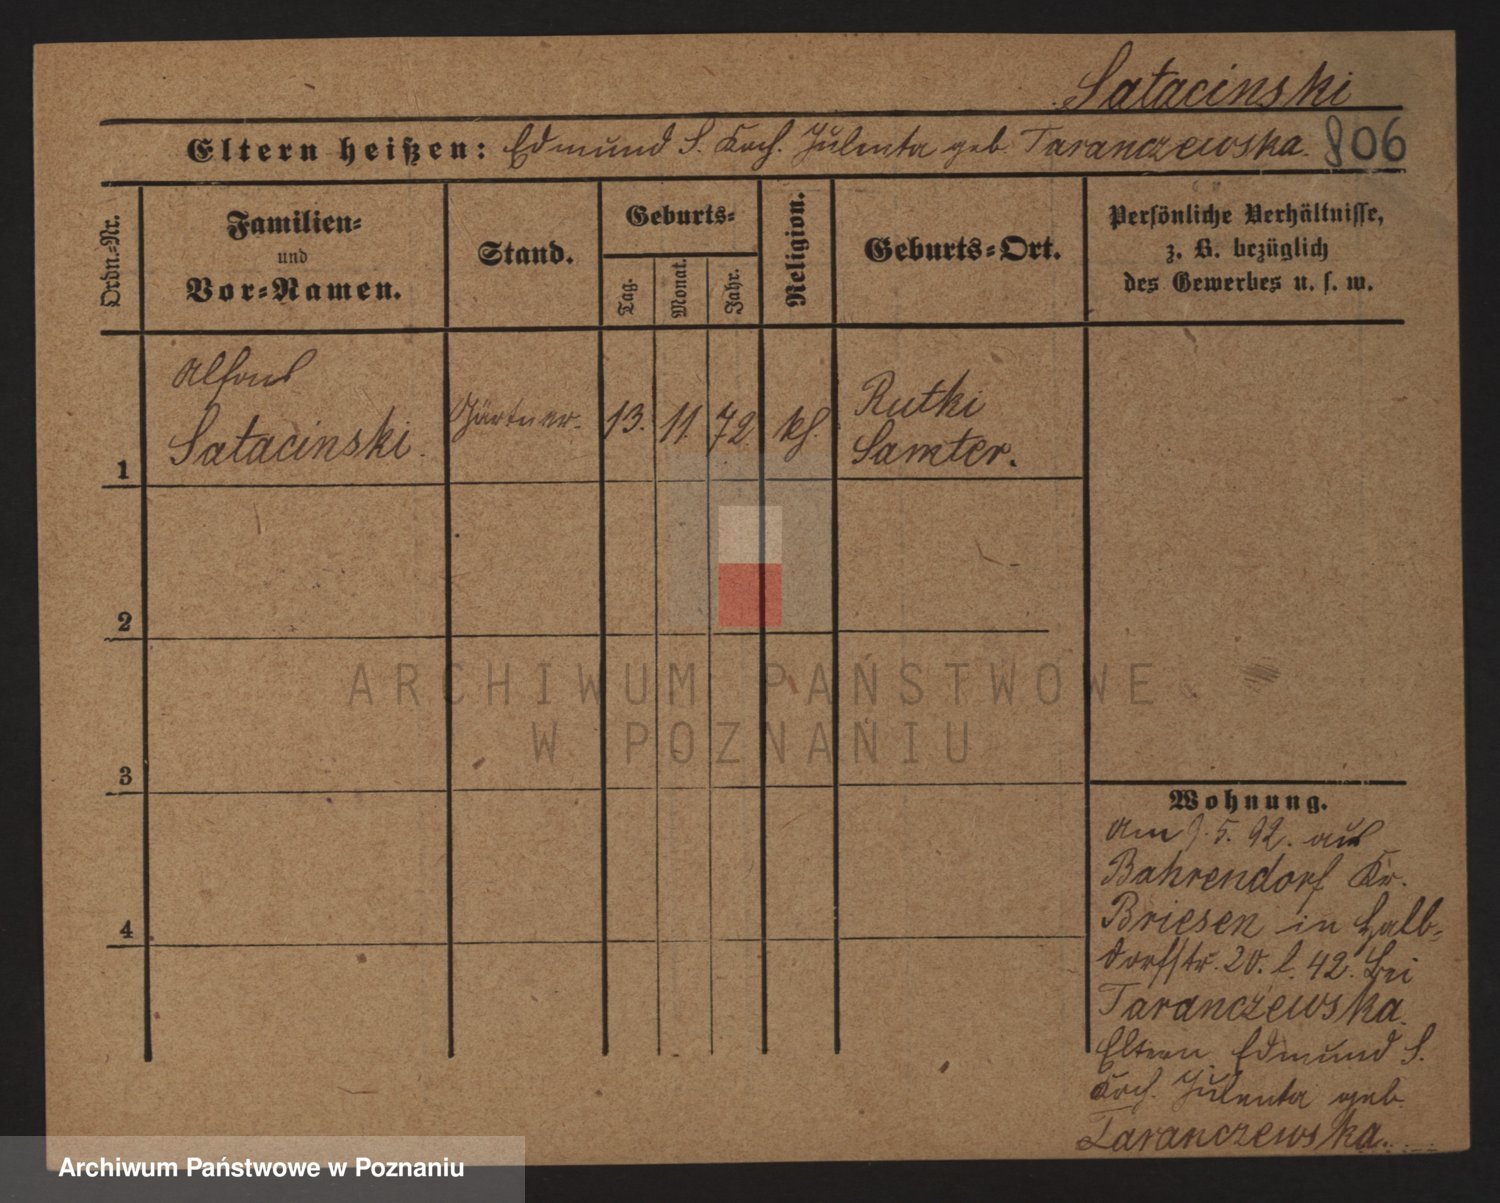 Satacinski
Eltern heißen: Edmund S. Koch. Julenta geb. Taranczewska. 806
Ordn.-Nr.
Familien-
und
Vor-Namen.
Stand.
Geburts-
Tag.
Monat.
Jahr.
Religion.
Geburts-Ort.
Persönliche Verhältnisse,
z. B. bezüglich
des Gewerbes u. s. w.
Alfons
Satacinski.
Gärtner.
13. 11. 72.
Rutki
Samter.
1
2
3
4
ARCHIWUM PAŃSTWOWE
W POZNANIU
Wohnung.
Am 9. 5. 92. aus
Bahrendorf Kr.
Briesen in Halb-
dorfstr. 20. l. 42. bei
Taranczewska.
Eltern Edmund S.
Koch. Julenta geb
Taranczewska.
Archiwum Państwowe w Poznaniu